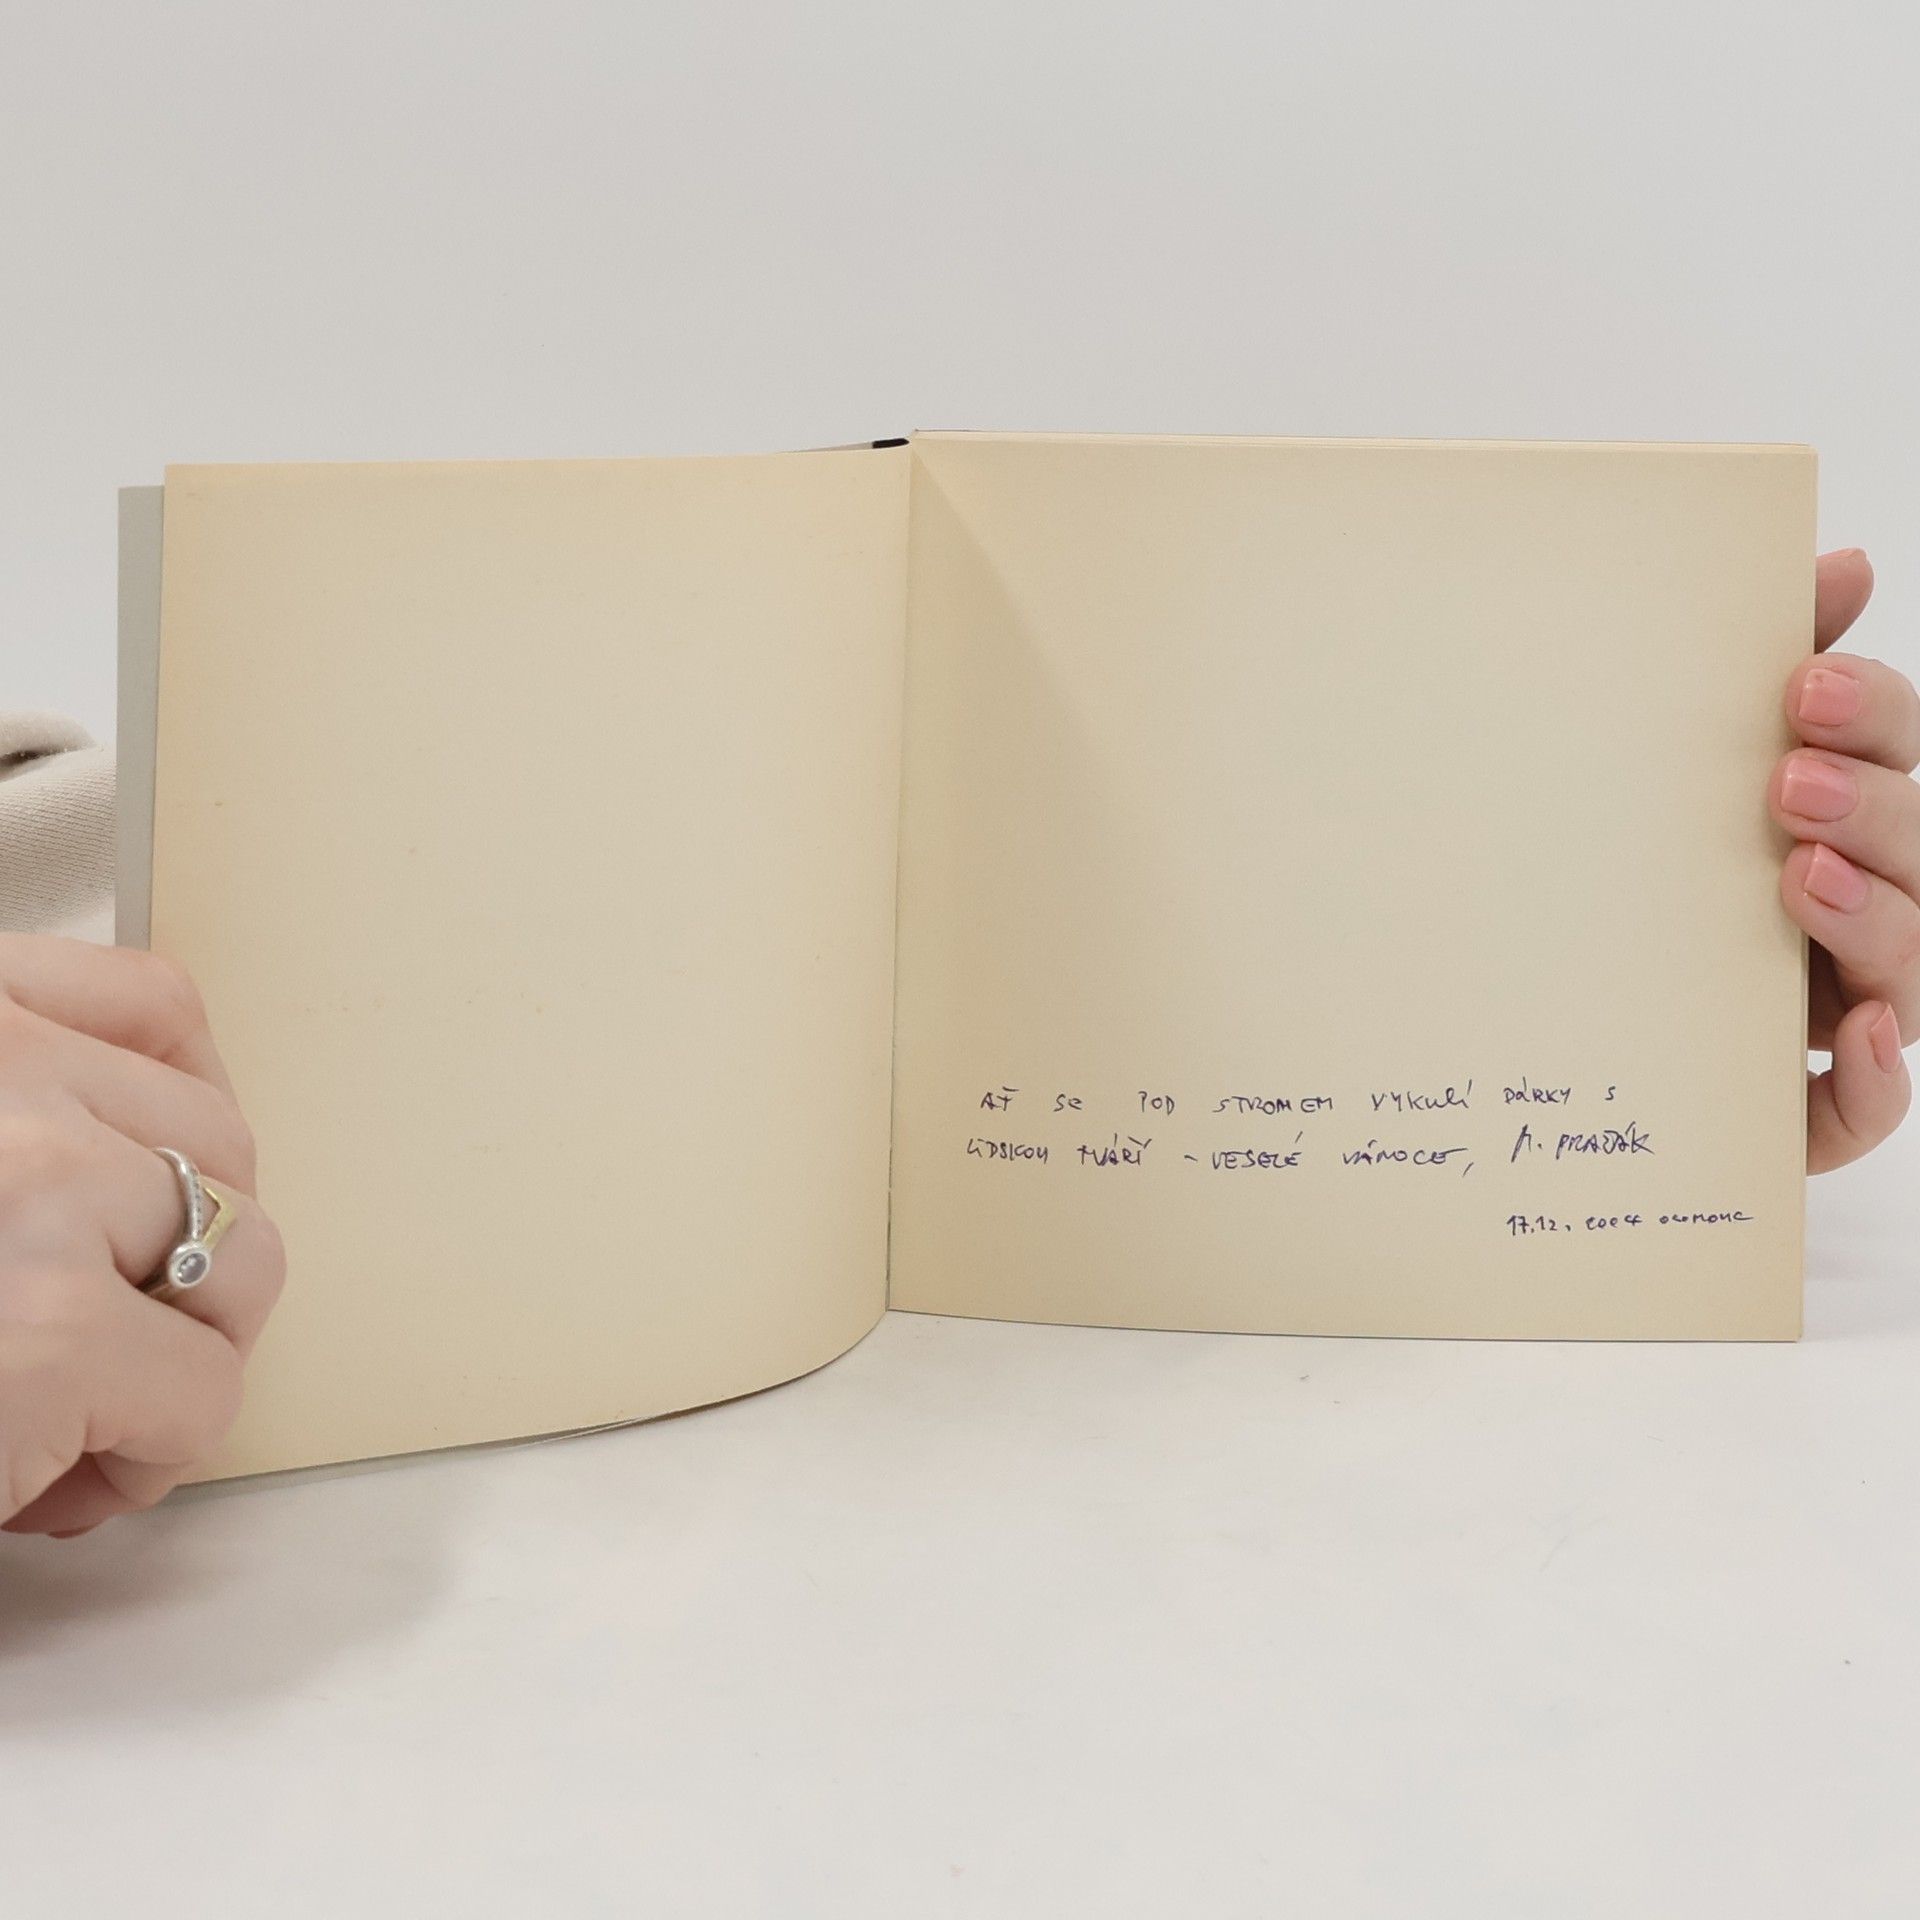 AŤ SE POD STROMEM VYKULÍ DÁRKY S
LIDSKOU TVÁŘÍ - VESELÉ VÁNOCE,
17.12. OLOMOUC